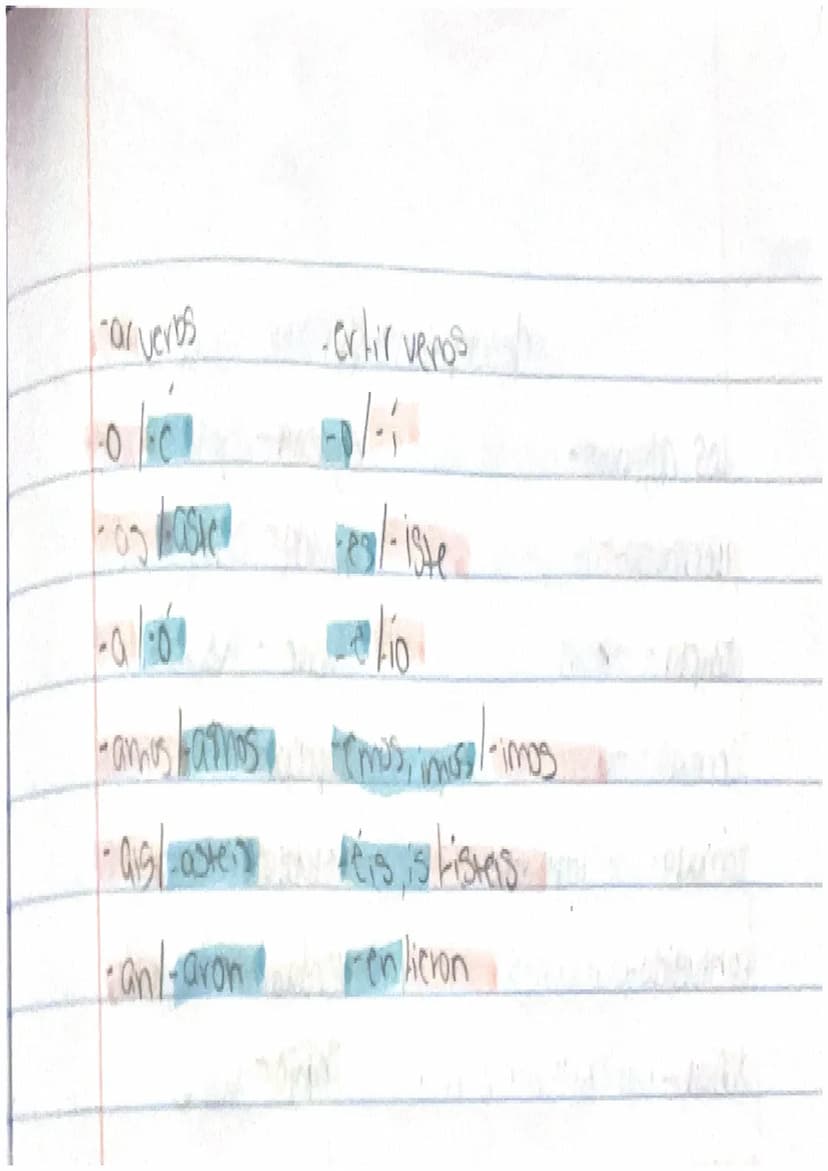 -ar verbs -er/ir verbs
-o/-é -o/-í
-as/-aste -es/-iste
-a/-ó -e/-ió
-amos/-amos -emos, imos/-imos
-ais/-asteis -éis, is/-isteis
-an/-aron -en/ieron